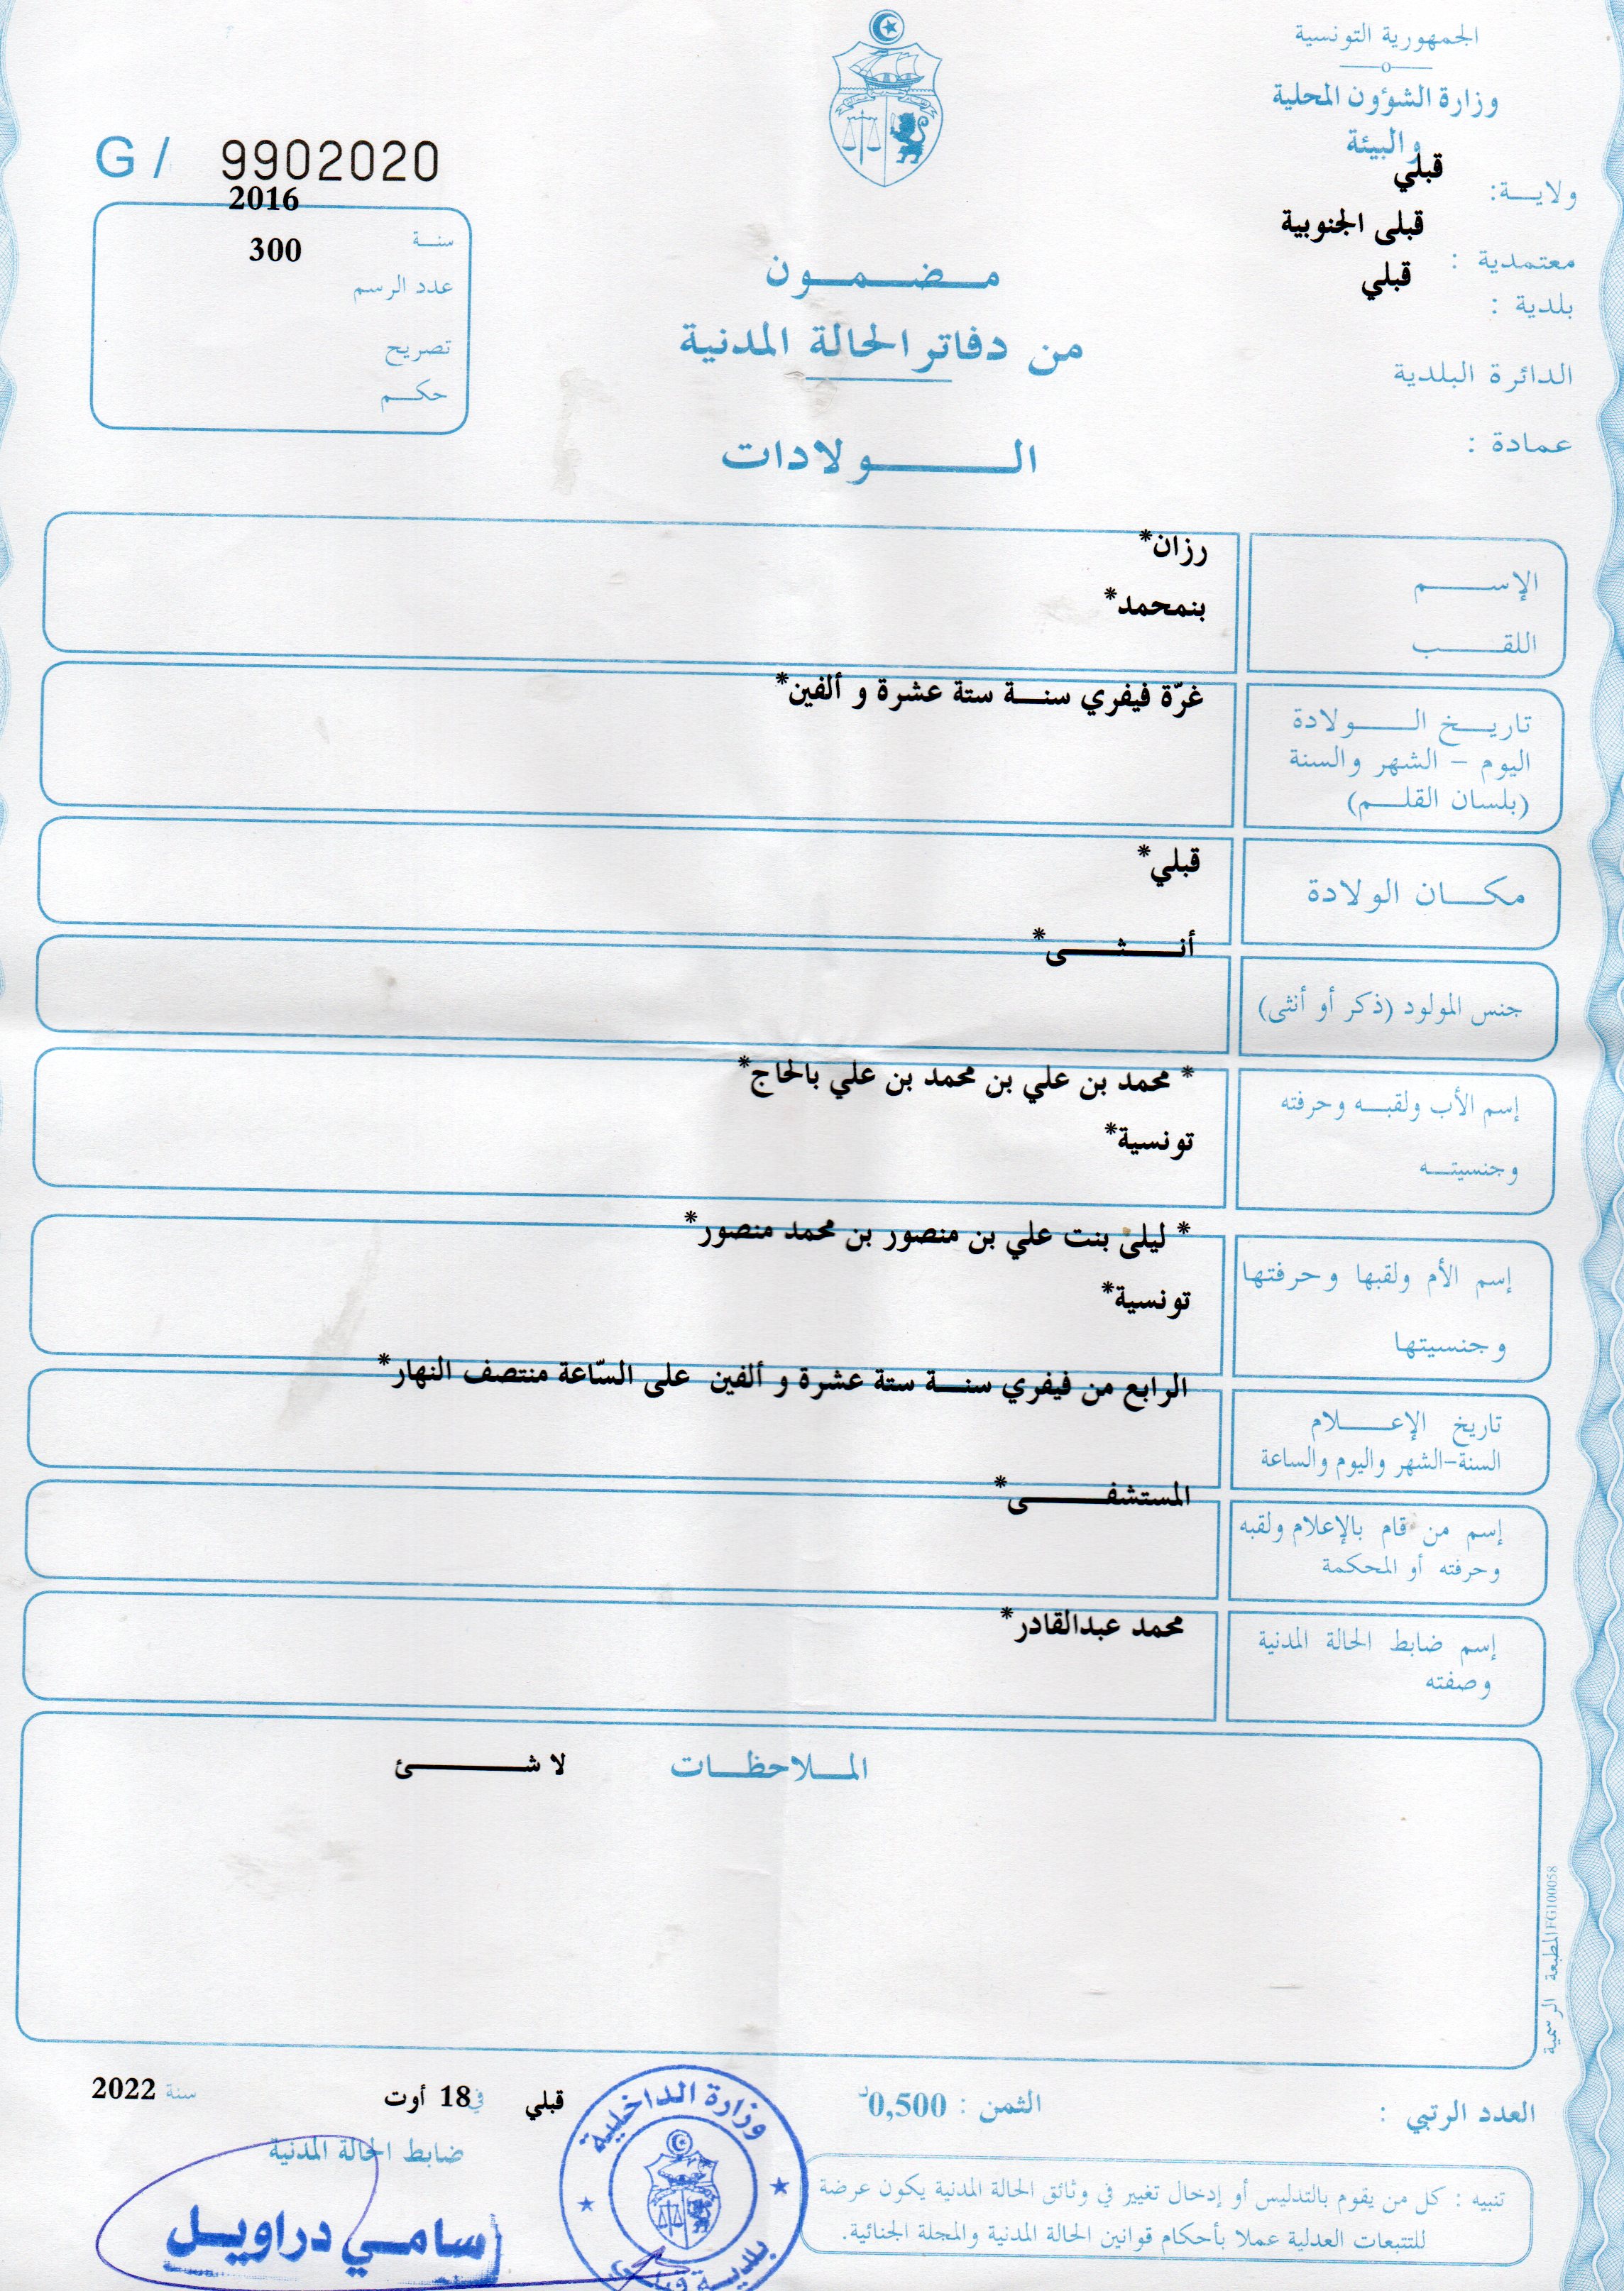 الجمهورية التونسية
وزارة الشؤون المحلية
والبيئة
ولايـــة: قبلي
معتمدية : قبلى الجنوبية
بلدية : قبلي
الدائرة البلدية
عمادة :
G / 9902020
سنــة 2016
عدد الرسم 300
تصريح
حكــم
مـــضـــمـــون
من دفاتر الحالة المدنية
الـــــولادات
الإســـــم رزان*
اللقـــــب بنمحمد*
تاريـــخ الـــــولادة غرّة فيفري سنـــة ستة عشرة و ألفين*
اليوم – الشهر والسنة
(بلسان القلـــم)
مكـــان الولادة قبلي*
جنس المولود (ذكر أو أنثى) أنـــثـــى*
إسم الأب ولقبــه وحرفته * محمد بن علي بن محمد بن علي بالحاج*
وجنسيتــه تونسية*
إسم الأم ولقبها وحرفتها * ليلى بنت علي بن منصور بن محمد منصور*
وجنسيتها تونسية*
تاريخ الإعـــــلام الرابع من فيفري سنـــة ستة عشرة و ألفين على السّاعة منتصف النهار*
السنة-الشهر واليوم والساعة
إسم من قام بالإعلام ولقبه المستشفـــــى*
وحرفته أو المحكمة
إسم ضابط الحالة المدنية محمد عبدالقادر*
وصفته
المـــلاحظـــات لا شـــــئ
المطبعة الرسمية FG100058
العدد الرتبي :
الثمن : 0,500د
قبلي في 18 أوت سنة 2022
ضابط الحالة المدنية
سامي دراويل
وزارة الداخلية
بلدية قبلي
تنبيه : كل من يقوم بالتدليس أو إدخال تغيير في وثائق الحالة المدنية يكون عرضة
للتتبعات العدلية عملا بأحكام قوانين الحالة المدنية والمجلة الجنائية.